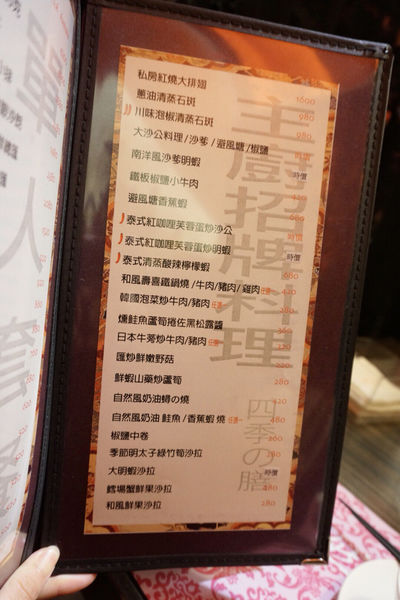 私房紅燒大排翅 1600
蔥油清蒸石斑 980
川味泡椒清蒸石斑 980
大沙公料理/沙爹/避風塘/椒鹽 時價
南洋風沙爹明蝦 時價
鐵板椒鹽小牛肉
避風塘香蕉蝦
泰式紅咖哩芙蓉蛋炒沙公 時價
泰式紅咖哩芙蓉蛋炒明蝦 時價
泰式清蒸酸辣檸檬蝦 680
和風壽喜鐵鍋燒/牛肉/豬肉/雞肉 任選一 420
韓國泡菜炒牛肉/豬肉 任選一 380
燻鮭魚蘆筍捲佐黑松露醬 360
日本牛蒡炒牛肉/豬肉 任選一 320
匯炒鮮嫩野菇 220
鮮蝦山藥炒蘆筍 280
自然風奶油蟳の燒 420
自然風奶油 鮭魚/香蕉蝦 燒 任選一 480
椒鹽中卷 260
季節明太子綠竹筍沙拉 280
大明蝦沙拉 時價
鱈場蟹鮮果沙拉 480
和風鮮果沙拉 280
主廚招牌料理
四季の膳
單人套